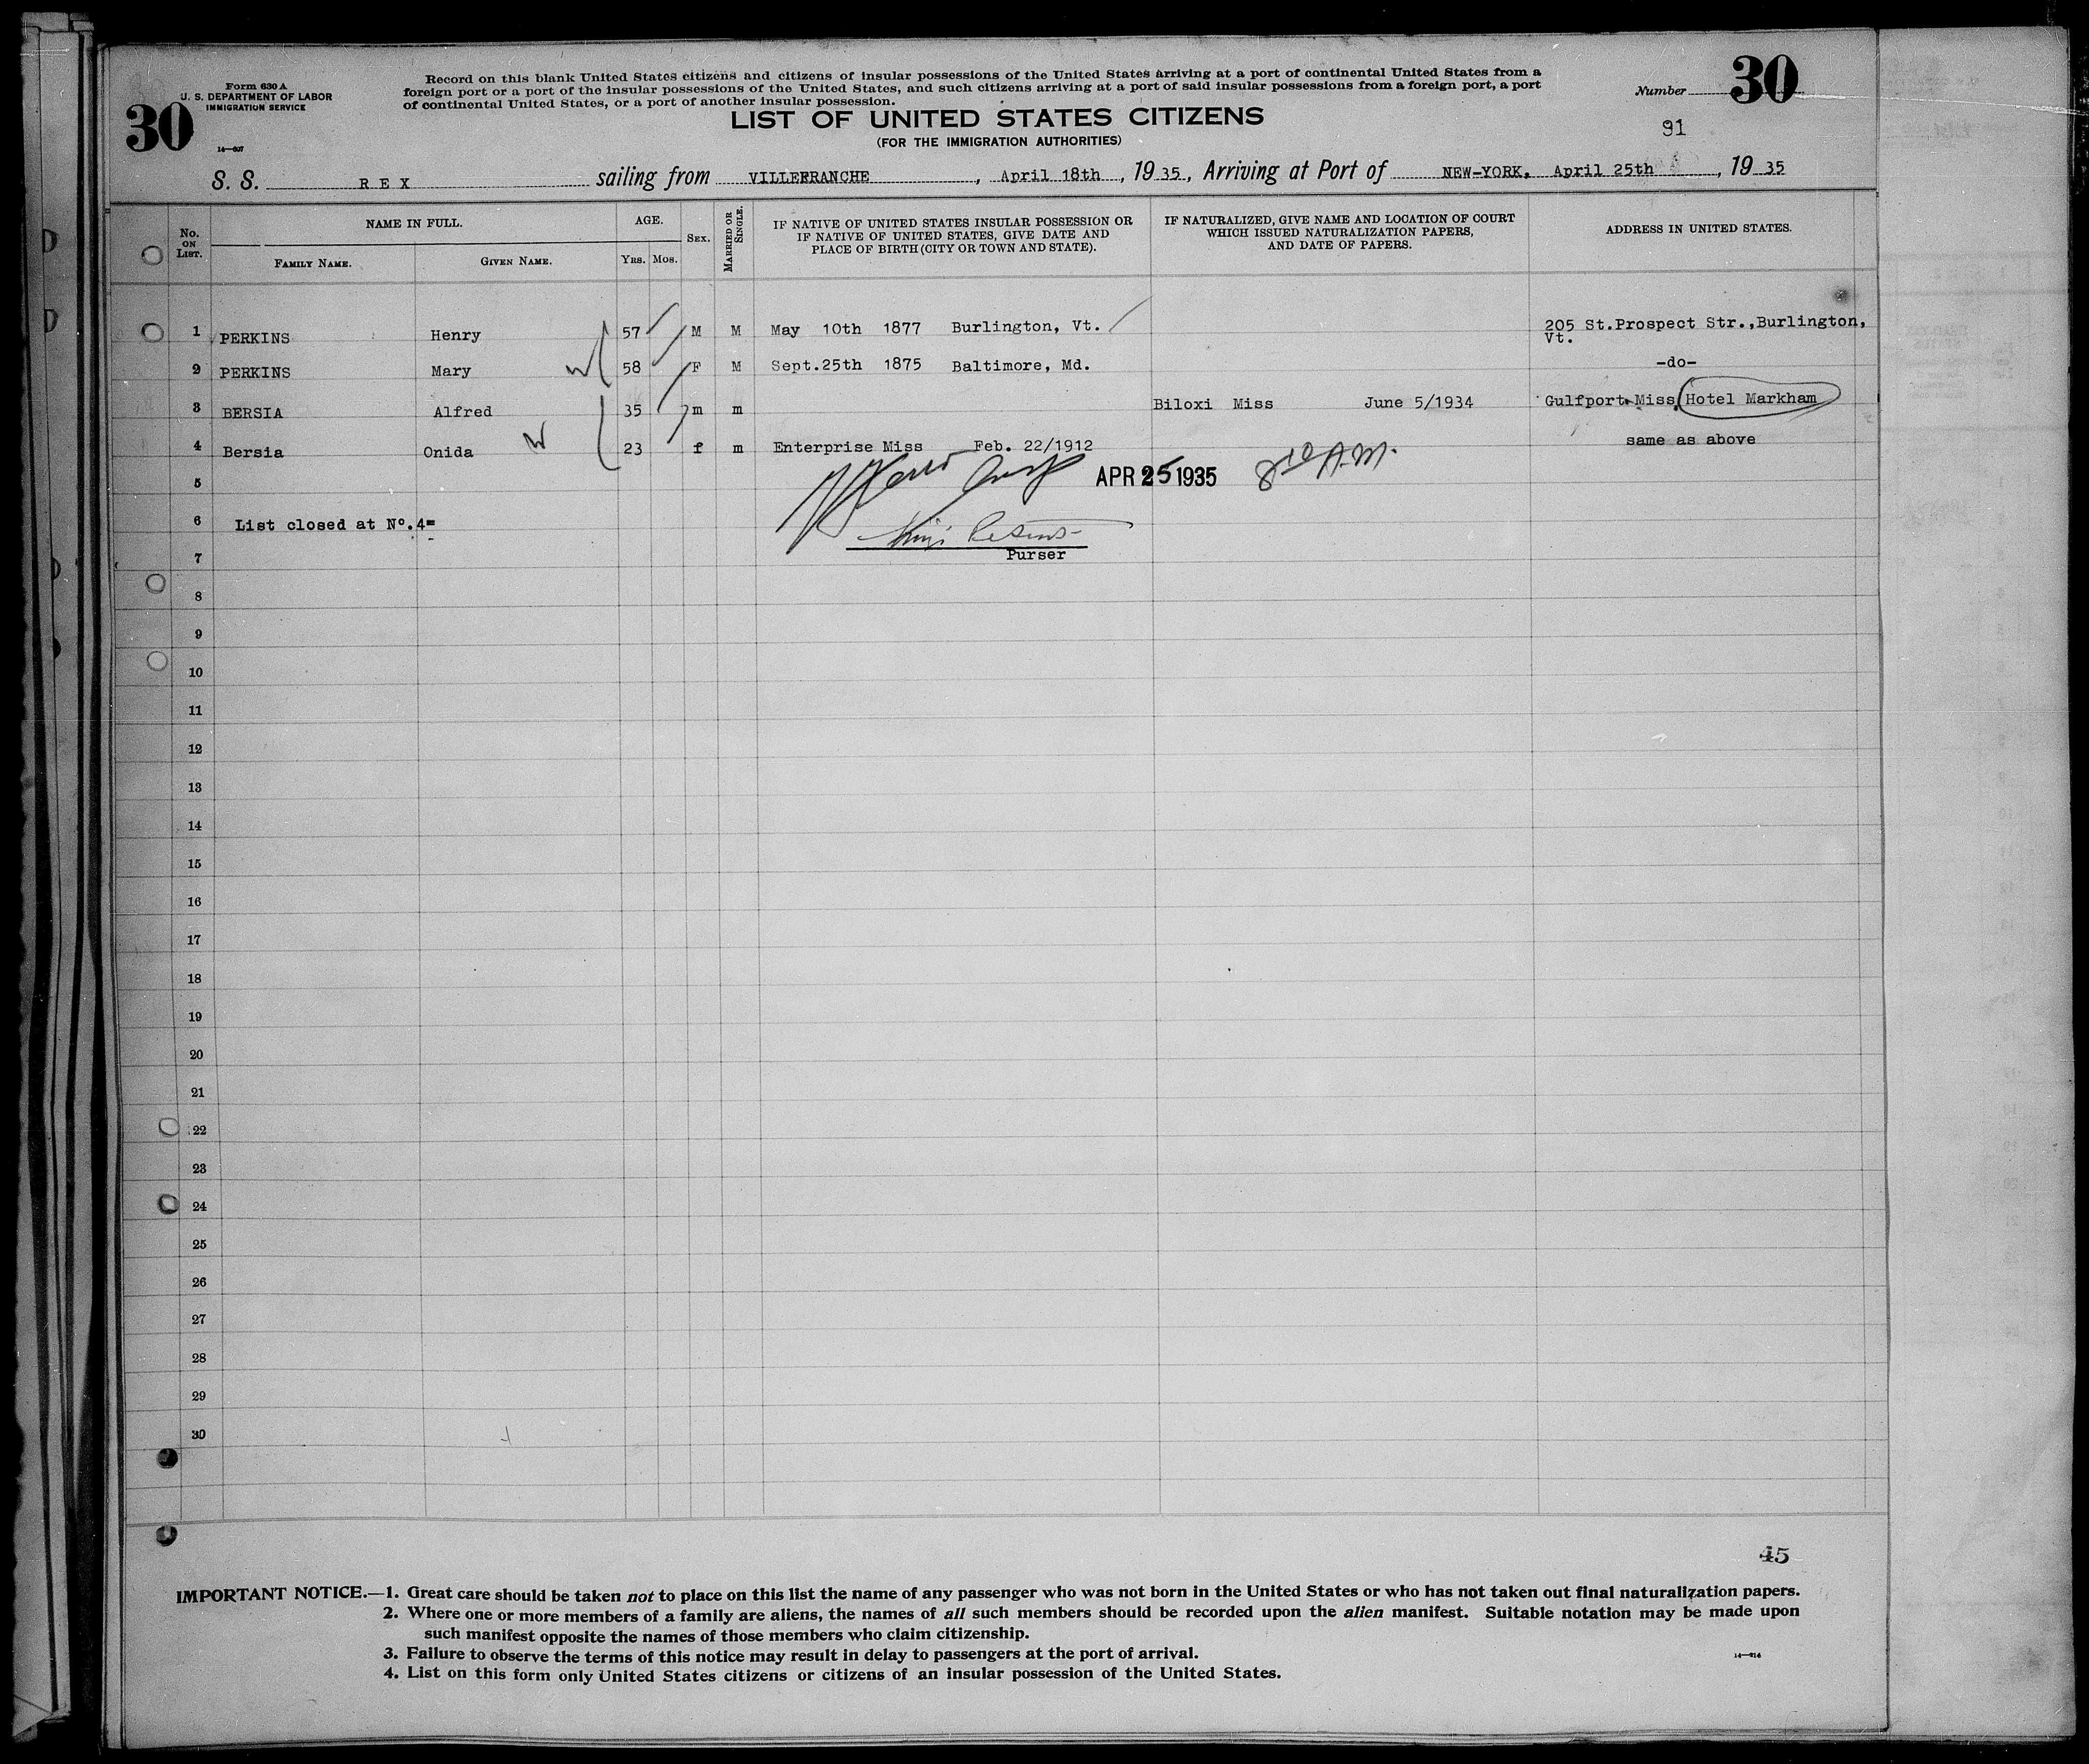 Form 630 A
U. S. DEPARTMENT OF LABOR
IMMIGRATION SERVICE
30
14—607
Record on this blank United States citizens and citizens of insular possessions of the United States arriving at a port of continental United States from a
foreign port or a port of the insular possessions of the United States, and such citizens arriving at a port of said insular possessions from a foreign port, a port
of continental United States, or a port of another insular possession.
Number 30
91
LIST OF UNITED STATES CITIZENS
(FOR THE IMMIGRATION AUTHORITIES)
S. S. REX sailing from VILLEFRANCHE, April 18th, 1935, Arriving at Port of NEW-YORK, April 25th, 1935
No. ON LIST.
NAME IN FULL.
FAMILY NAME. GIVEN NAME.
AGE.
YRS. MOS.
SEX.
MARRIED OR SINGLE.
IF NATIVE OF UNITED STATES INSULAR POSSESSION OR
IF NATIVE OF UNITED STATES, GIVE DATE AND
PLACE OF BIRTH (CITY OR TOWN AND STATE).
IF NATURALIZED, GIVE NAME AND LOCATION OF COURT
WHICH ISSUED NATURALIZATION PAPERS,
AND DATE OF PAPERS.
ADDRESS IN UNITED STATES.
1 PERKINS Henry 57 M M May 10th 1877 Burlington, Vt. 205 St.Prospect Str.,Burlington,
Vt.
2 PERKINS Mary W 58 F M Sept.25th 1875 Baltimore, Md. -do-
3 BERSIA Alfred 35 m m Biloxi Miss June 5/1934 Gulfport Miss. Hotel Markham
4 Bersia Onida W 23 f m Enterprise Miss Feb. 22/1912 same as above
5 APR 25 1935 A.M.
6 List closed at Nº.4=
7 Purser
8
9
10
11
12
13
14
15
16
17
18
19
20
21
22
23
24
25
26
27
28
29
30
45
IMPORTANT NOTICE.—1. Great care should be taken not to place on this list the name of any passenger who was not born in the United States or who has not taken out final naturalization papers.
2. Where one or more members of a family are aliens, the names of all such members should be recorded upon the alien manifest. Suitable notation may be made upon
such manifest opposite the names of those members who claim citizenship.
3. Failure to observe the terms of this notice may result in delay to passengers at the port of arrival.
4. List on this form only United States citizens or citizens of an insular possession of the United States.